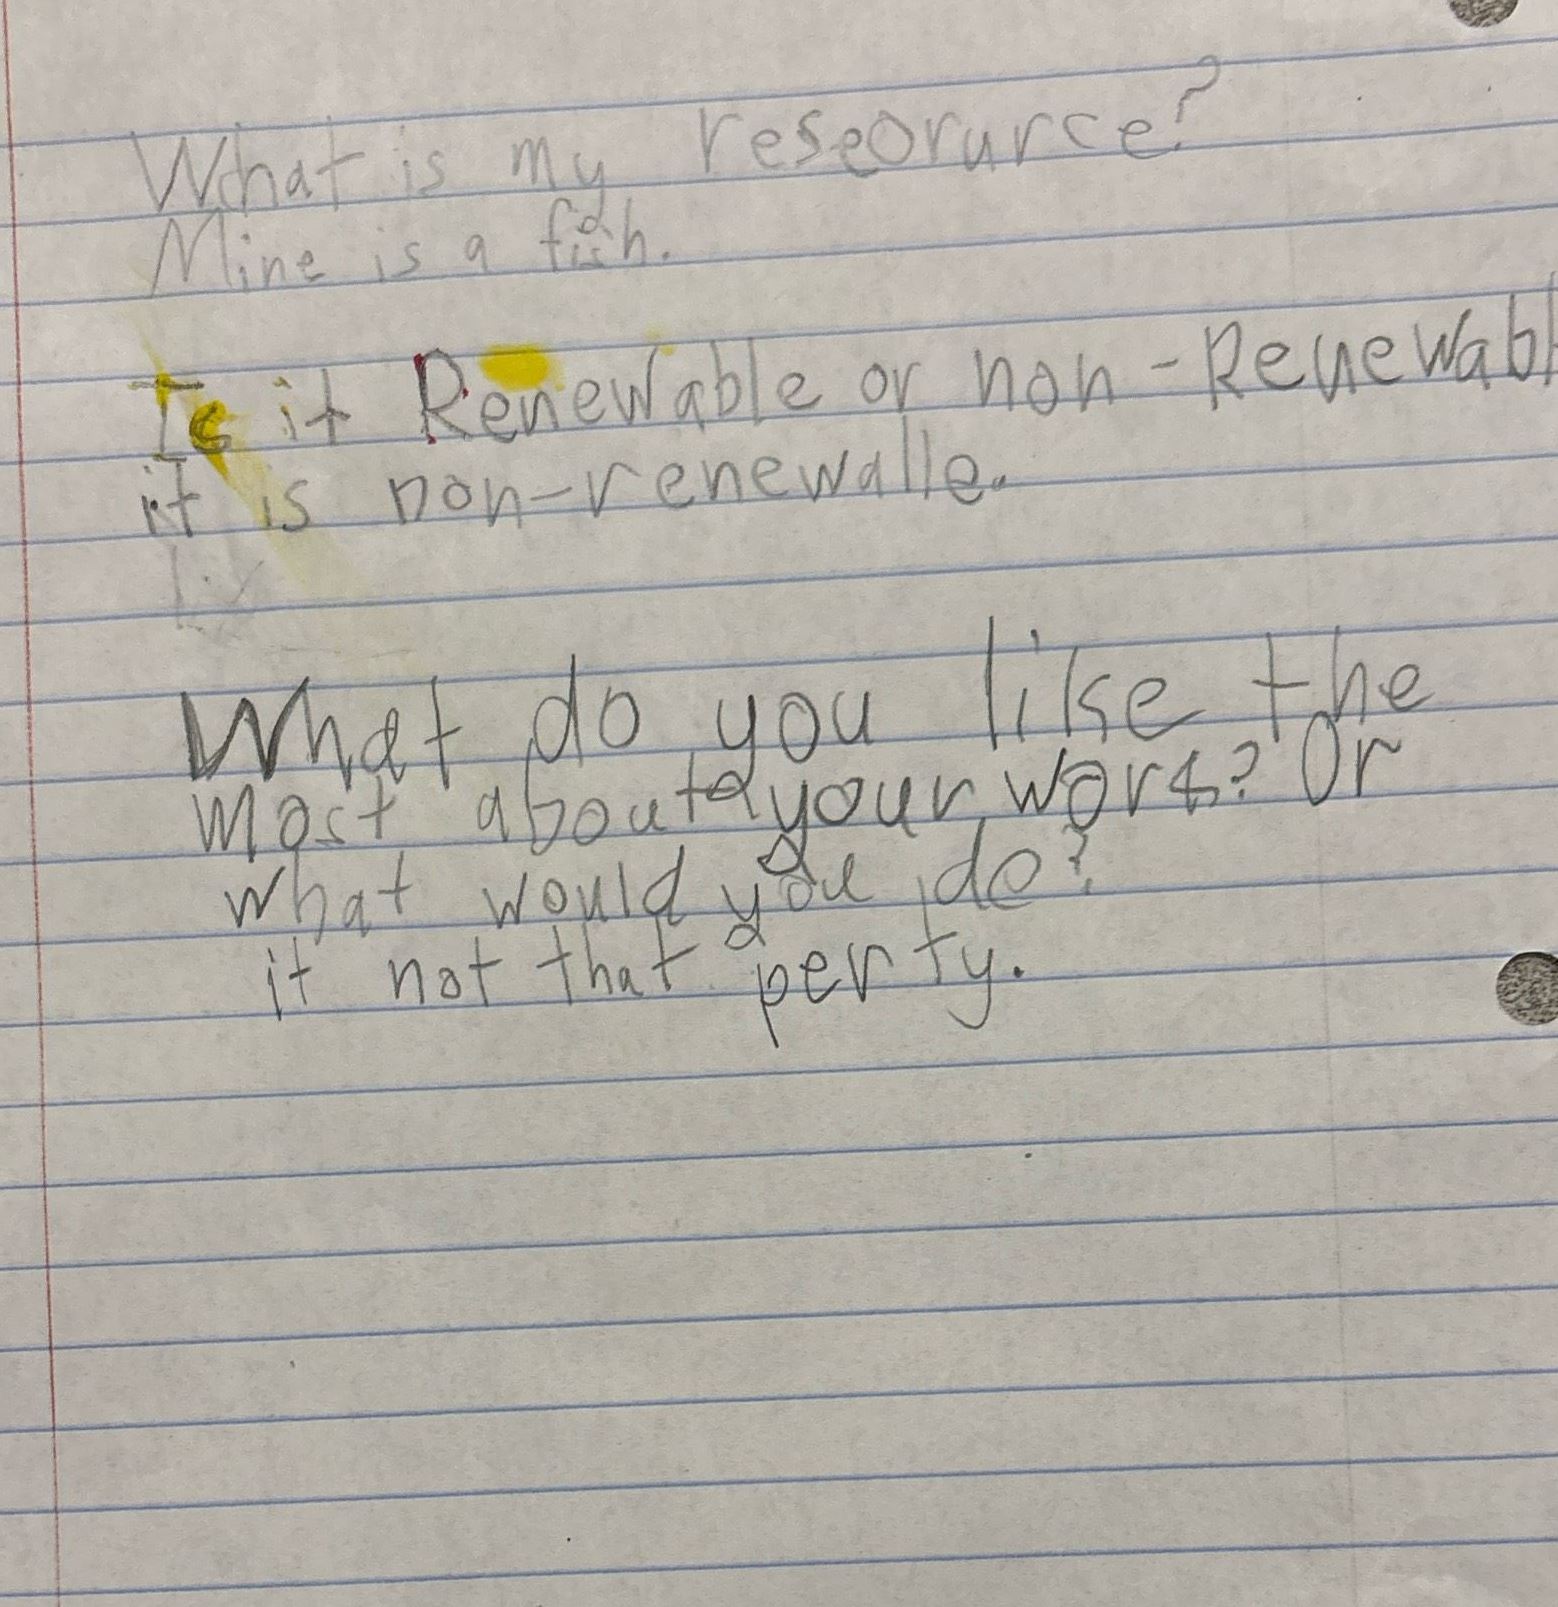 What is my reseorurce?
Mine is a fish.
Is it Renewable or non-Renewabl
it is non-renewalle.
What do you like the
most about your work? Or
what would you do?
it not that perty.